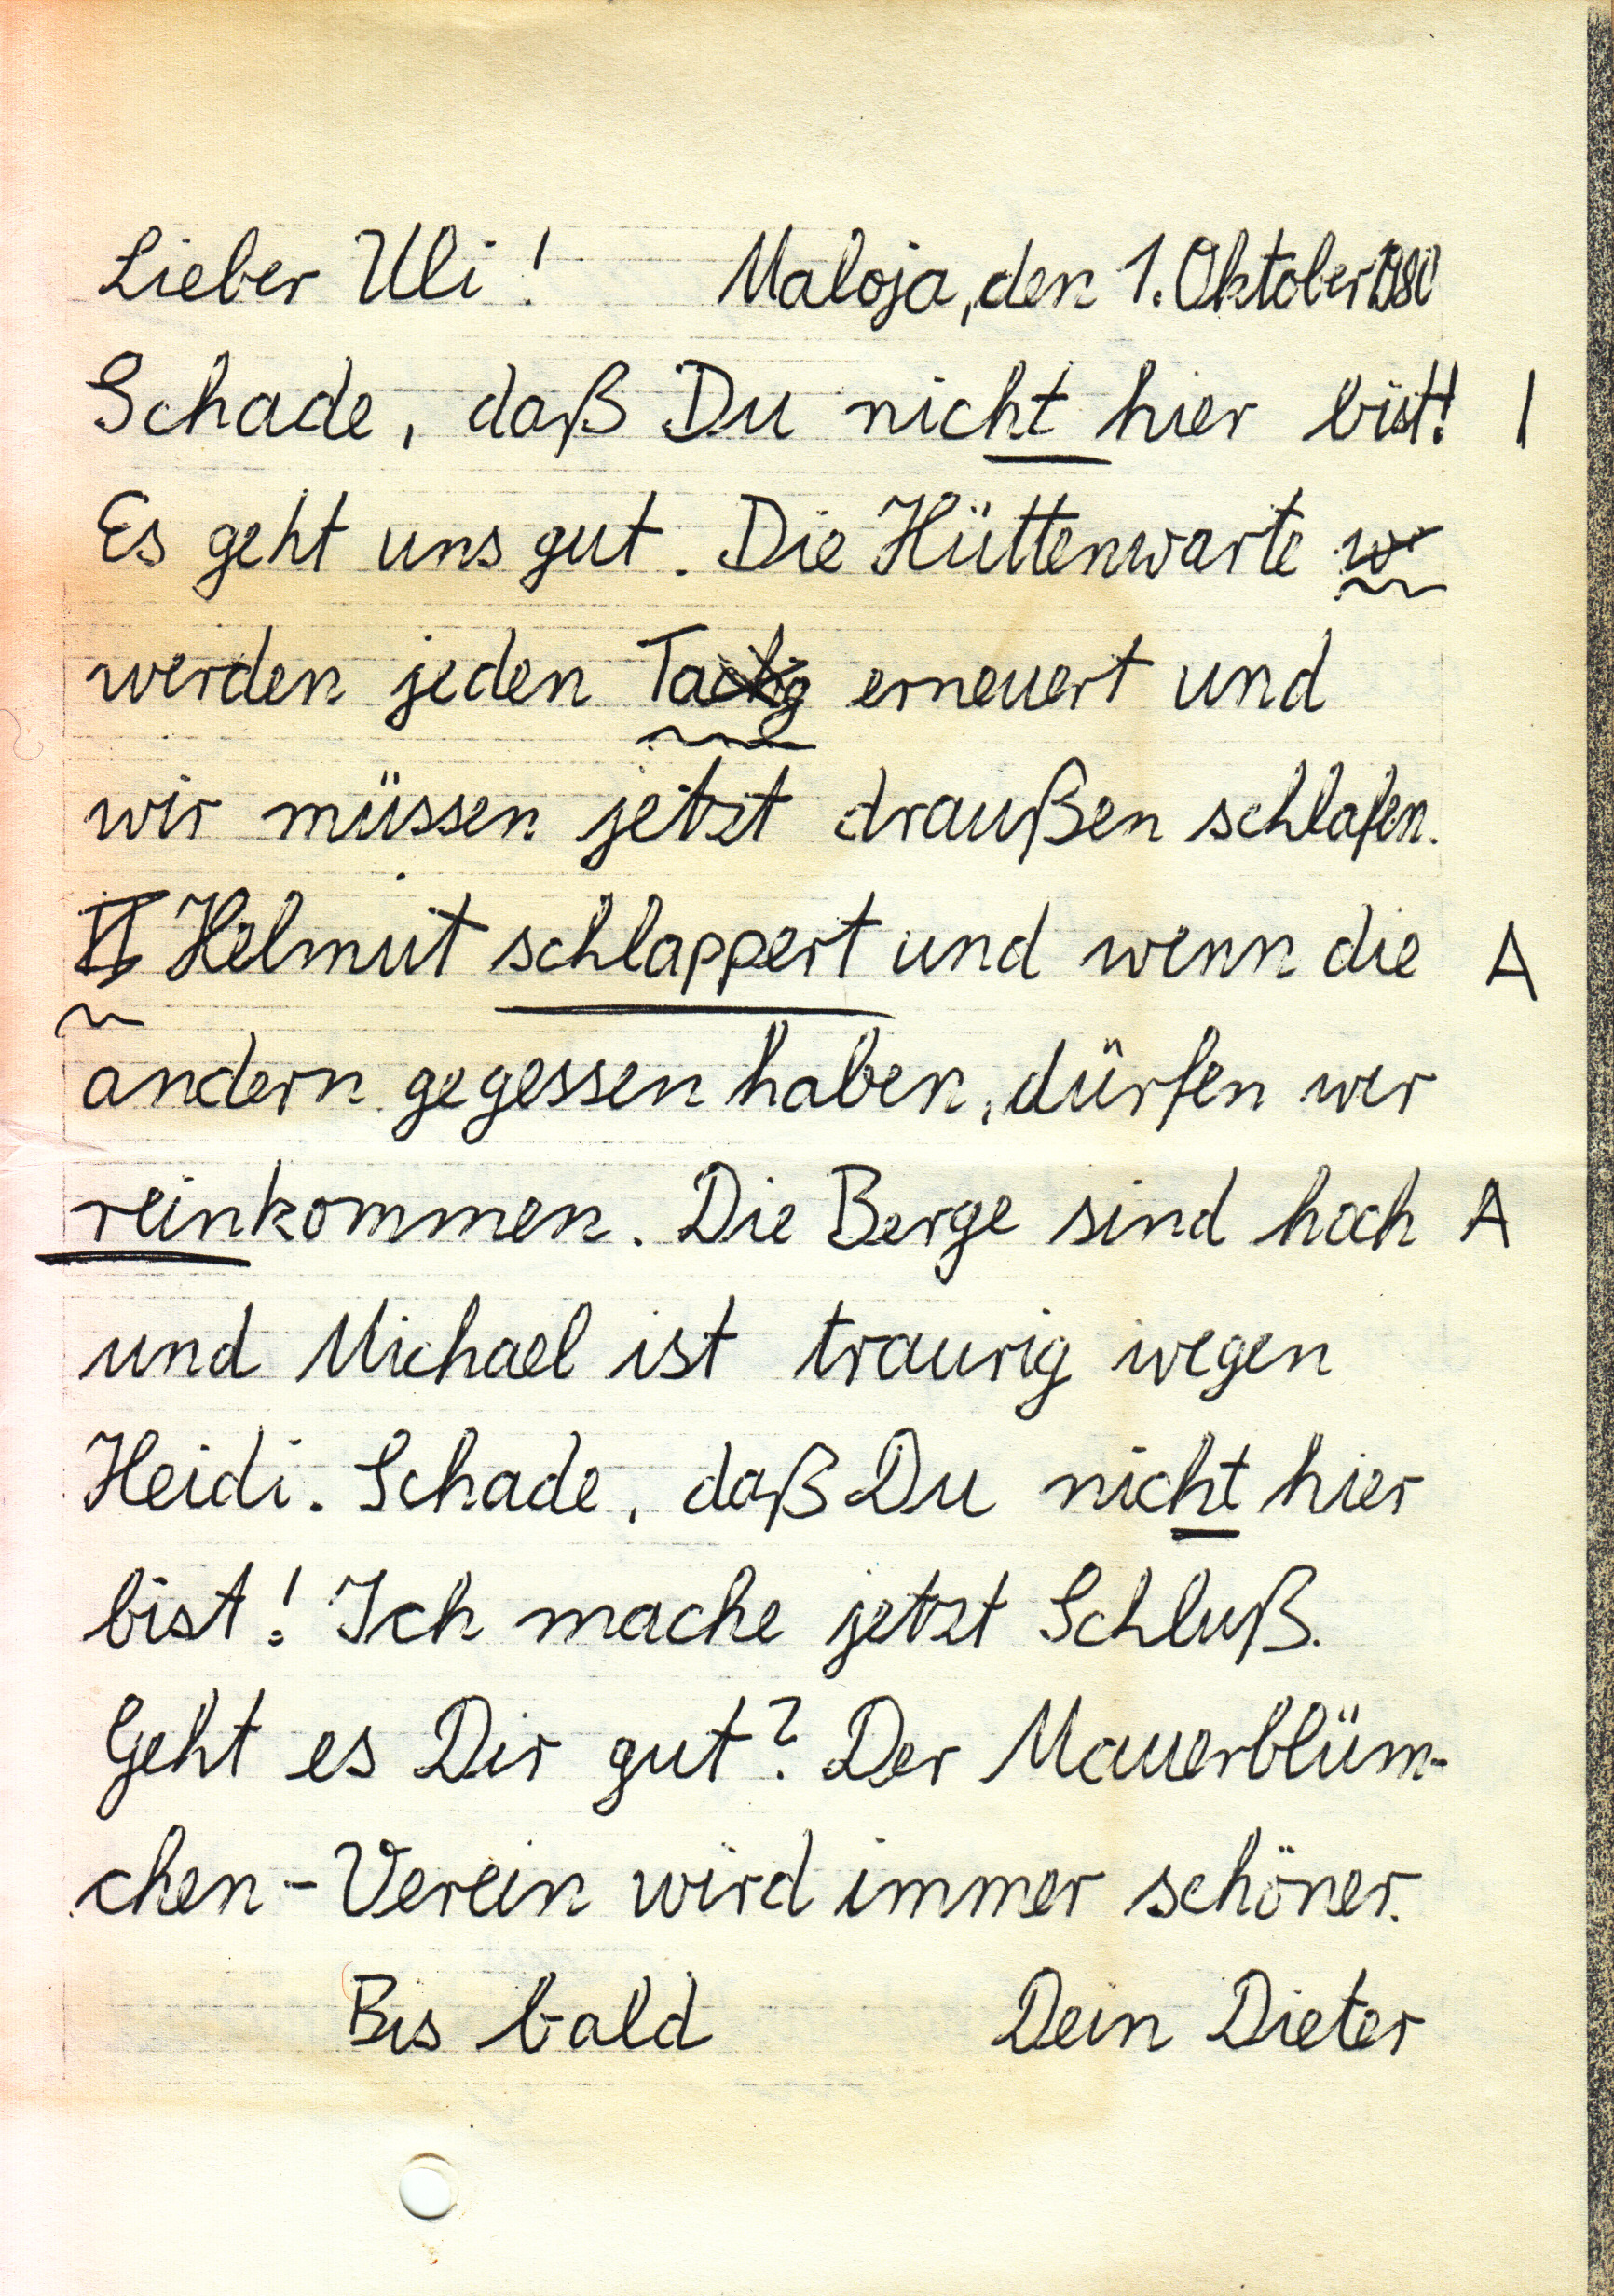 Lieber Uli! Maloja, den 1. Oktober 1980
Schade, daß Du nicht hier bist! I
Es geht uns gut. Die Hüttenwarte w
werden jeden Tag erneuert und
wir müssen jetzt draußen schlafen.
Helmut schlappert und wenn die A
andern gegessen haben, dürfen wir
reinkommen. Die Berge sind hoch A
und Michael ist traurig wegen
Heidi. Schade, daß Du nicht hier
bist! Ich mache jetzt Schluß.
Geht es Dir gut? Der Mauerblüm-
chen-Verein wird immer schöner.
Bis bald Dein Dieter